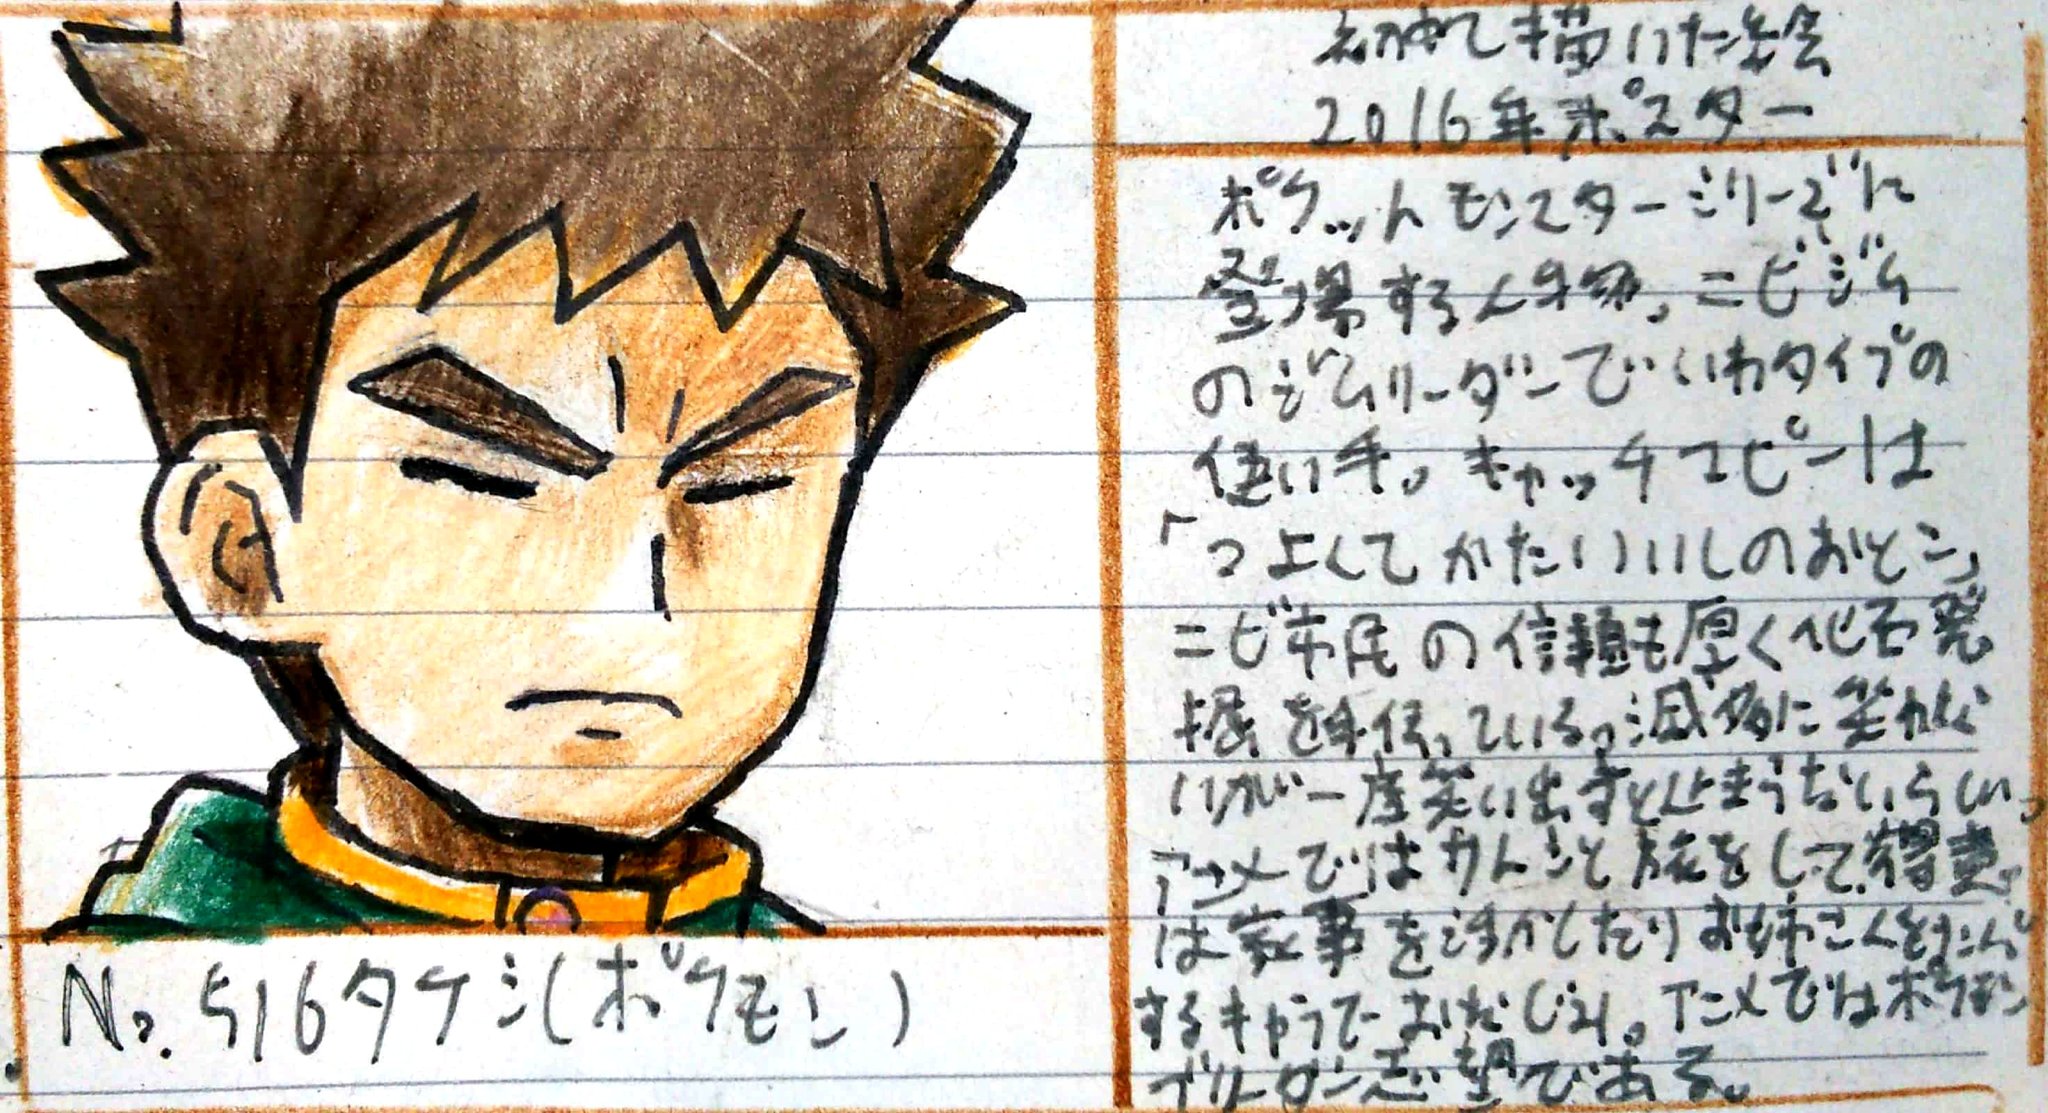 初めて描いた絵
2016年ポスター
ポケットモンスターシリーズに
登場する人物。ニビジム
のジムリーダーでいわタイプの
使い手。キャッチコピーは
「つよくてかたいいしのおとこ」
ニビ市民の信頼も厚く化石発
掘を手伝っている。滅多に笑わな
いが一度笑い出すと止まらないらしい。
アニメではサトシと旅をして得意
は家事を活かしたりおねえさんをナンパ
するキャラでおなじみ。アニメではポケモン
ブリーダー志望である。
No.516タケシ(ポケモン)